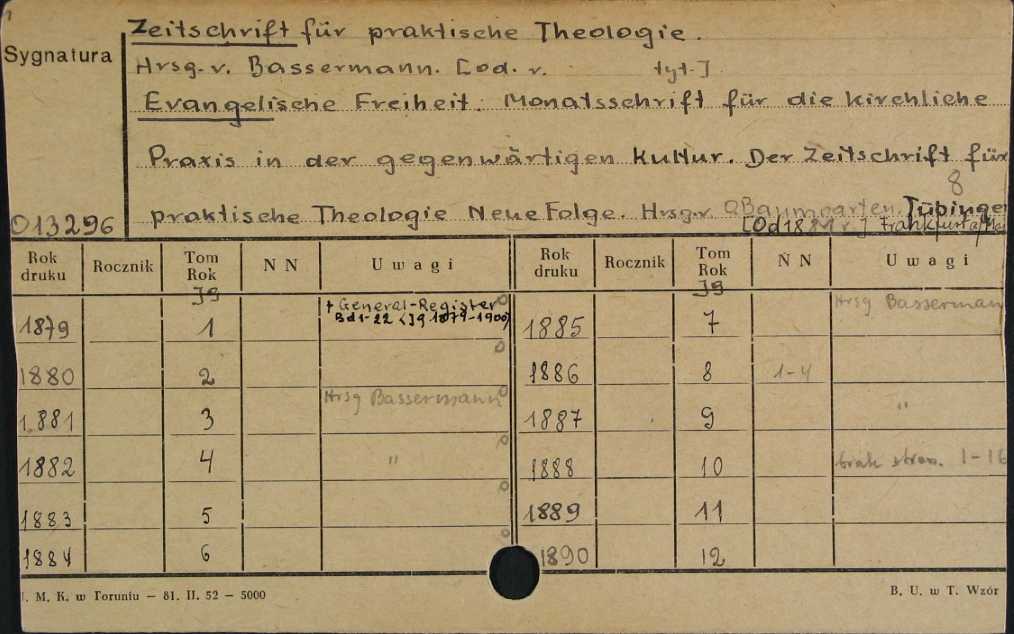 Sygnatura
Zeitschrift für praktische Theologie.
Hrsg. v. Bassermann. [od. v. tyt.]
Evangelische Freiheit. Monatsschrift für die kirchliche
Praxis in der gegenwärtigen Kultur. Der Zeitschrift für
8
013296 praktische Theologie Neue Folge. Hrsg. v. O Baumgarten. Tübinge
[Od 1881 r.] Frankfurt a/Mai
Rok druku Rocznik Tom Rok N N Uwagi Rok druku Rocznik Tom Rok N N Uwagi
Jg Jg
1879 1 + General-Register 1885 7 Hrsg Basserman
Bd 1-22 (Jg 1879-1900)
1880 2 1886 8 1-4
1881 3 Hrsg Bassermann 1887 9 "
1882 4 " 1888 10 brak stron. 1-16
1883 5 1889 11
1884 6 1890 12
. M. K. w Toruniu — 81. II. 52 — 5000 B. U. w T. Wzór